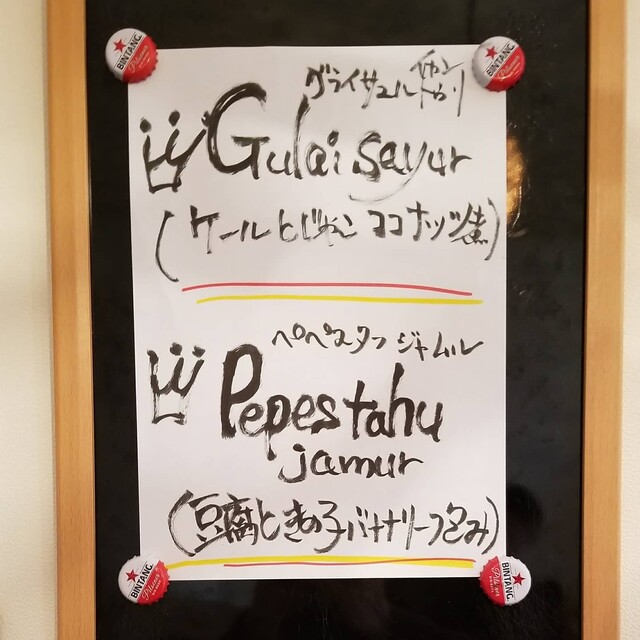 BINTANG
BINTANG
グライサユル
Gulai sayur
(ケールとじゃこ ココナッツ煮)
ペペスタフ ジャムル
Pepes tahu
jamur
(豆腐ときの子バナナリーフ包み)
BINTANG
BINTANG
Pilsener